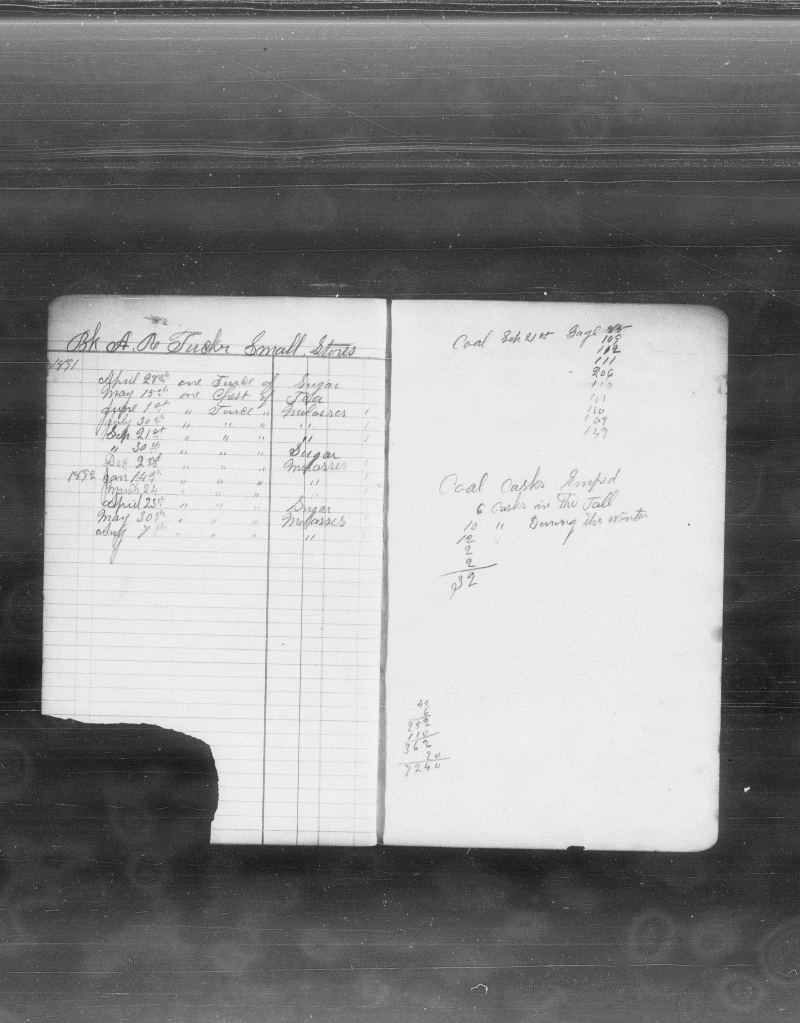 Bk A. R. Tucker Small Stores
1891
April 28th one Turce of Sugar
May 15th one Chest of Tea
June 1st " Turce " Molasses 1
July 30th " " " " 1
Sep 21st " " " " 1
" 30th " " " Sugar
Dec 2nd " " " Molasses 1
1892 Jan 14th " " " " 1
March 24 " " " " 1
April 25th " " " Sugar
May 30th " " " Molasses 1
Aug 7th " " " " 1
Coal Sep 21st Gage 85
109
112
111
206
110
111
110
109
139
Coal Casks Empd
6 Casks in The Fall
10 " During the Winter
12 "
2
2
32
42
6
252
110
362
20
7240